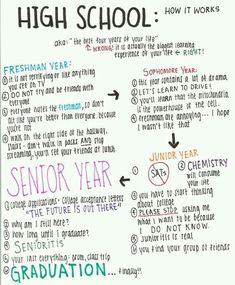 HIGH SCHOOL:
HOW IT WORKS
aka: "the best four years of your life"
WRONG! it is actually the biggest learning
experience of your life ← RIGHT!
FRESHMAN YEAR:
① it is not terrifying or like anything
you see on TV
② DO NOT try and be friends with
everyone
③ everyone hates the freshman, so don't
act like you're better than everyone. because
you're not
④ walk on the right side of the hallway,
- don't walk in packs AND stop
screaming, you'll see your friends at lunch.
SOPHOMORE YEAR:
① this year contains a lot of drama,
② LET'S LEARN TO DRIVE!
③ you'll learn that the mitochondria
is the powerhouse of the cell.
④ freshman are annoying... I hope
I wasn't like that
JUNIOR YEAR
① SATs
② CHEMISTRY
will consume
your life
③ you have to start thinking
about college
④ PLEASE STOP asking me
what I want to be because
I DO NOT KNOW.
⑤ Junioritis is real
⑥ you find your group of friends
SENIOR YEAR
① college applications - college acceptance letters
"THE FUTURE IS OUT THERE"
② why am I still here?
③ how long until I graduate?
④ SENIORITIS
⑤ your last everything: prom, class trip
⑥ GRADUATION... finally!!